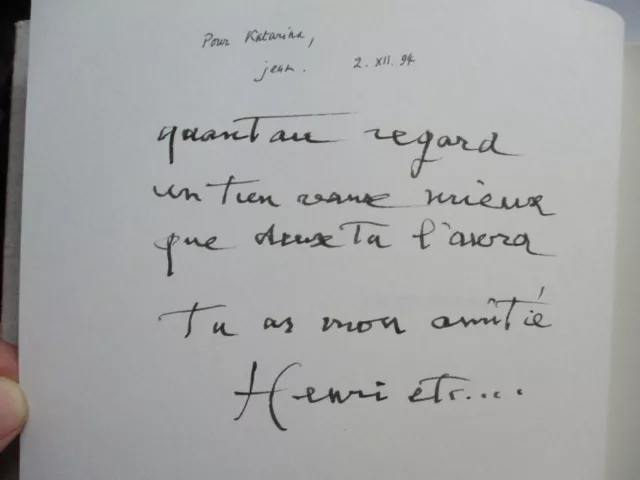 Pour Katarina,
jean. 2. XII. 94
quant au regard
un tien vaux mieux
que deux Tu l'aura
Tu as mon amitié
Henri etc....